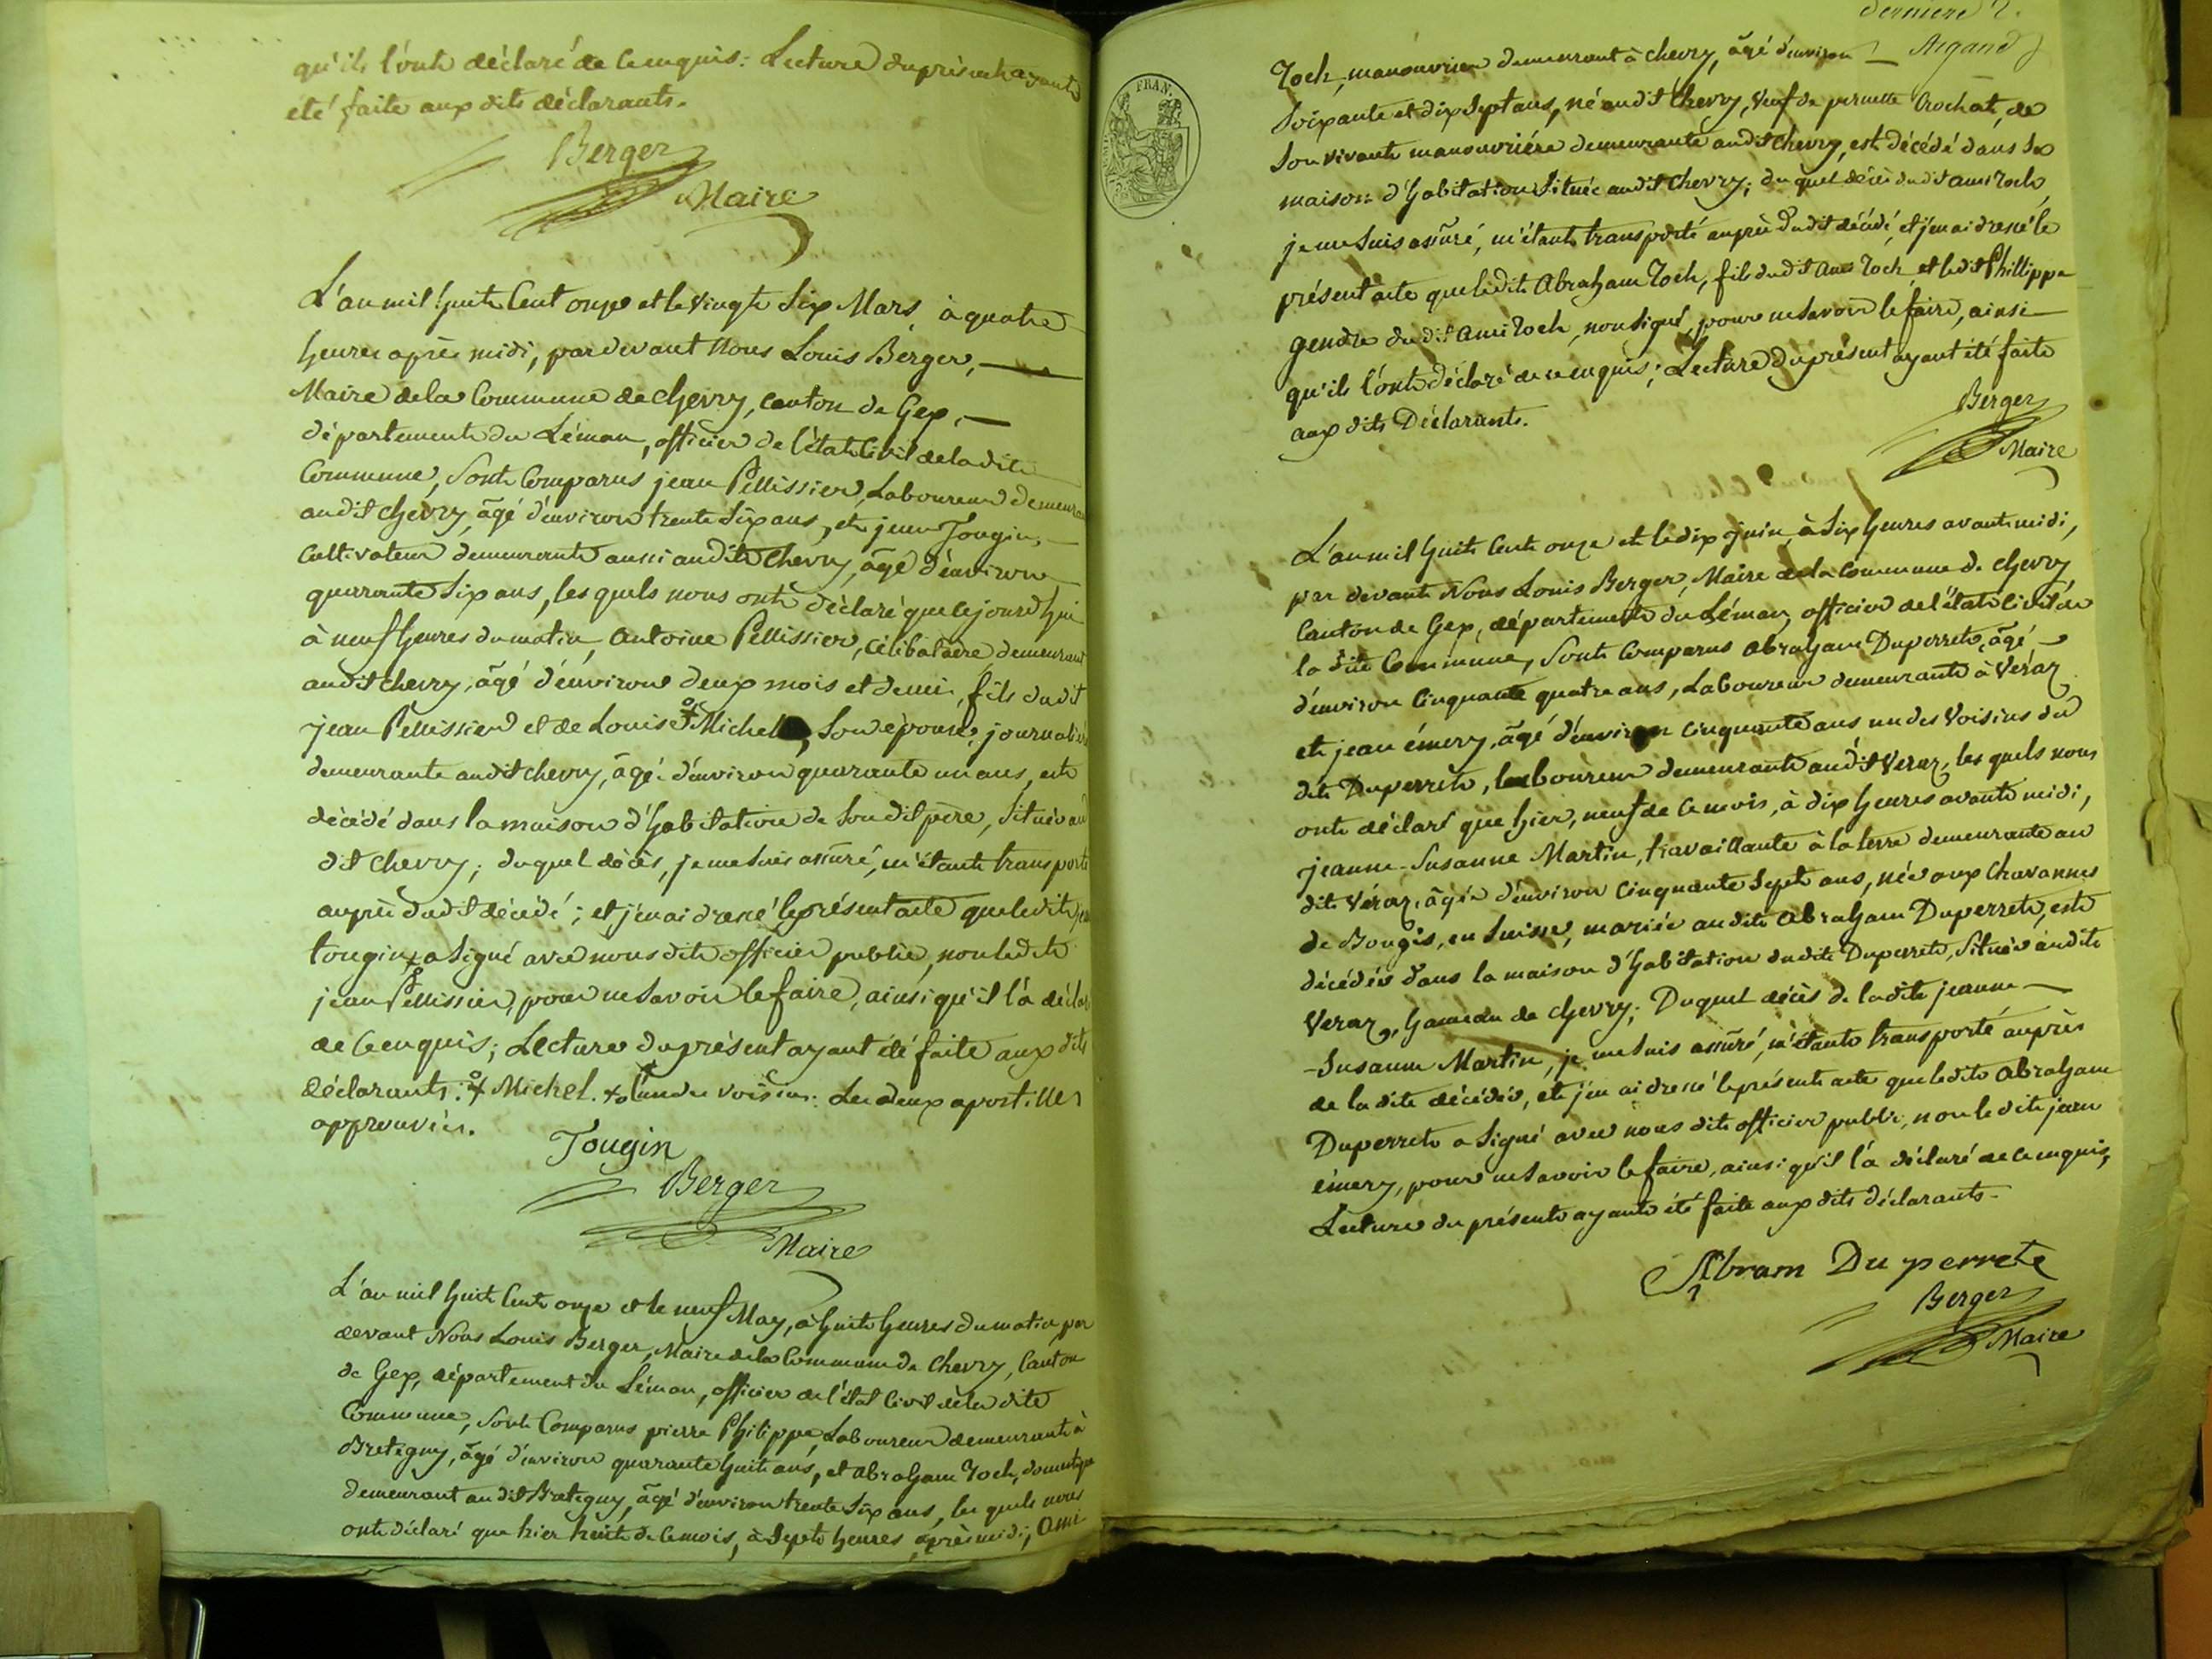 qu'ils l'ont déclaré de ce enquis: Lecture du présent ayant
été faite aux dits déclarants.
Berger
Maire
L'an mil huit Cent onze et le vingt Six Mars, à quatre
heures après midi, pardevant Nous Louis Berger,
Maire de la Commune de chevry, canton de Gex,
département du Léman, officier de l'état Civil de la dite
Commune, Sont Comparus jean Pellissier, Laboureur demeurant
audit chevry, âgé d'environ trente Six ans, et jean Tougin,
Cultivateur demeurant aussi audit chevry, âgé d'environ
quarante Six ans, les quels nous ont déclaré que cejourd'hui
à neuf heures du matin, Antoine Pellissier, célibataire demeurant
audit chevry, âgé d'environ deux mois et demi, fils dudit
jean Pellissier et de Louise Michel, Son épouse, journalière
demeurante audit chevry, âgée d'environ quarante un ans, est
décédé dans la maison d'habitation de Son dit père, Située au
dit chevry; duquel décès, je me suis assuré, m'étant transporté
auprès dudit décédé; et j'en ai dressé le présent acte que ledit jean
tougin + a Signé avec nous dit officier public, non ledit
jean Pellissier, pour ne Savoir le faire, ainsi qu'il l'a déclaré
de ce enquis; Lecture du présent ayant été faite aux dits
déclarants. Michel. + l'un des voisins. Les deux apostilles
approuvées.
Tougin
Berger
Maire
L'an mil huit Cent onze et le neuf May, à huit heures du matin, par
devant Nous Louis Berger, Maire de la Commune de Chevry, Canton
de Gex, département du Léman, officier de l'état Civil de la dite
Commune, Sont Comparus pierre Philippe, Laboureur demeurant à
Bretigny, âgé d'environ quarante huit ans, et Abraham Zoch, domestique
demeurant au dit Bretigny, âgé d'environ trente Six ans, les quels nous
ont déclaré que hier huit de ce mois, à Sept heures après midi, Ami
derniere 2.
Argand
Zoch, manouvrier demeurant à chevry, âgé d'environ
Soixante et dix Sept ans, né audit Chevry, veuf de pernette Crochat, de
Son vivant manouvrière demeurante audit chevry, est décédé dans Sa
maison d'habitation Située audit chevry; du quel décès dudit ami Zoch,
je me suis assuré, m'étant transporté auprès dudit décédé, et j'en ai dressé le
présent acte que ledit Abraham Zoch, fils dudit Ami Zoch et ledit Phillippe
gendre dudit Ami Zoch, non Signé, pour ne Savoir le faire, ainsi
qu'ils l'ont déclaré de ce enquis; Lecture du présent ayant été faite
aux dits Déclarants.
Berger
Maire
L'an mil huit Cent onze et le dix juin, à Six heures avant midi,
par devant Nous Louis Berger, Maire de la Commune de chevry
Canton de Gex, département du Léman, officier de l'état Civil de
la dite Commune, Sont Comparus Abraham Duperret, âgé
d'environ Cinquante quatre ans, Laboureur demeurant à Véraz
et jean émery, âgé d'environ Cinquante ans, un des Voisins du
dit Duperret, laboureur demeurant audit Veraz, les quels nous
ont déclaré que hier, neuf de ce mois, à dix heures avant midi,
jeanne-Susanne Martin, travaillante à la terre demeurante au
dit Véraz, âgée d'environ Cinquante Sept ans, née aux Chavannes
de Bougis, en Suisse, mariée audit Abraham Duperret, est
décédée dans la maison d'habitation dudit Duperret, Située audit
Veraz, hameau de chevry; Duquel décès de la dite jeanne
-Susanne Martin, je me suis assuré, m'étant transporté auprès
de la dite décédée, et j'en ai dressé le présent acte que ledit Abraham
Duperret a Signé avec nous dit officier public, non le dit jean
émery, pour ne Savoir le faire, ainsi qu'il l'a déclaré de ce enquis;
Lecture du présent ayant été faite aux dits déclarants.
Abram Du perrete
Berger
Maire